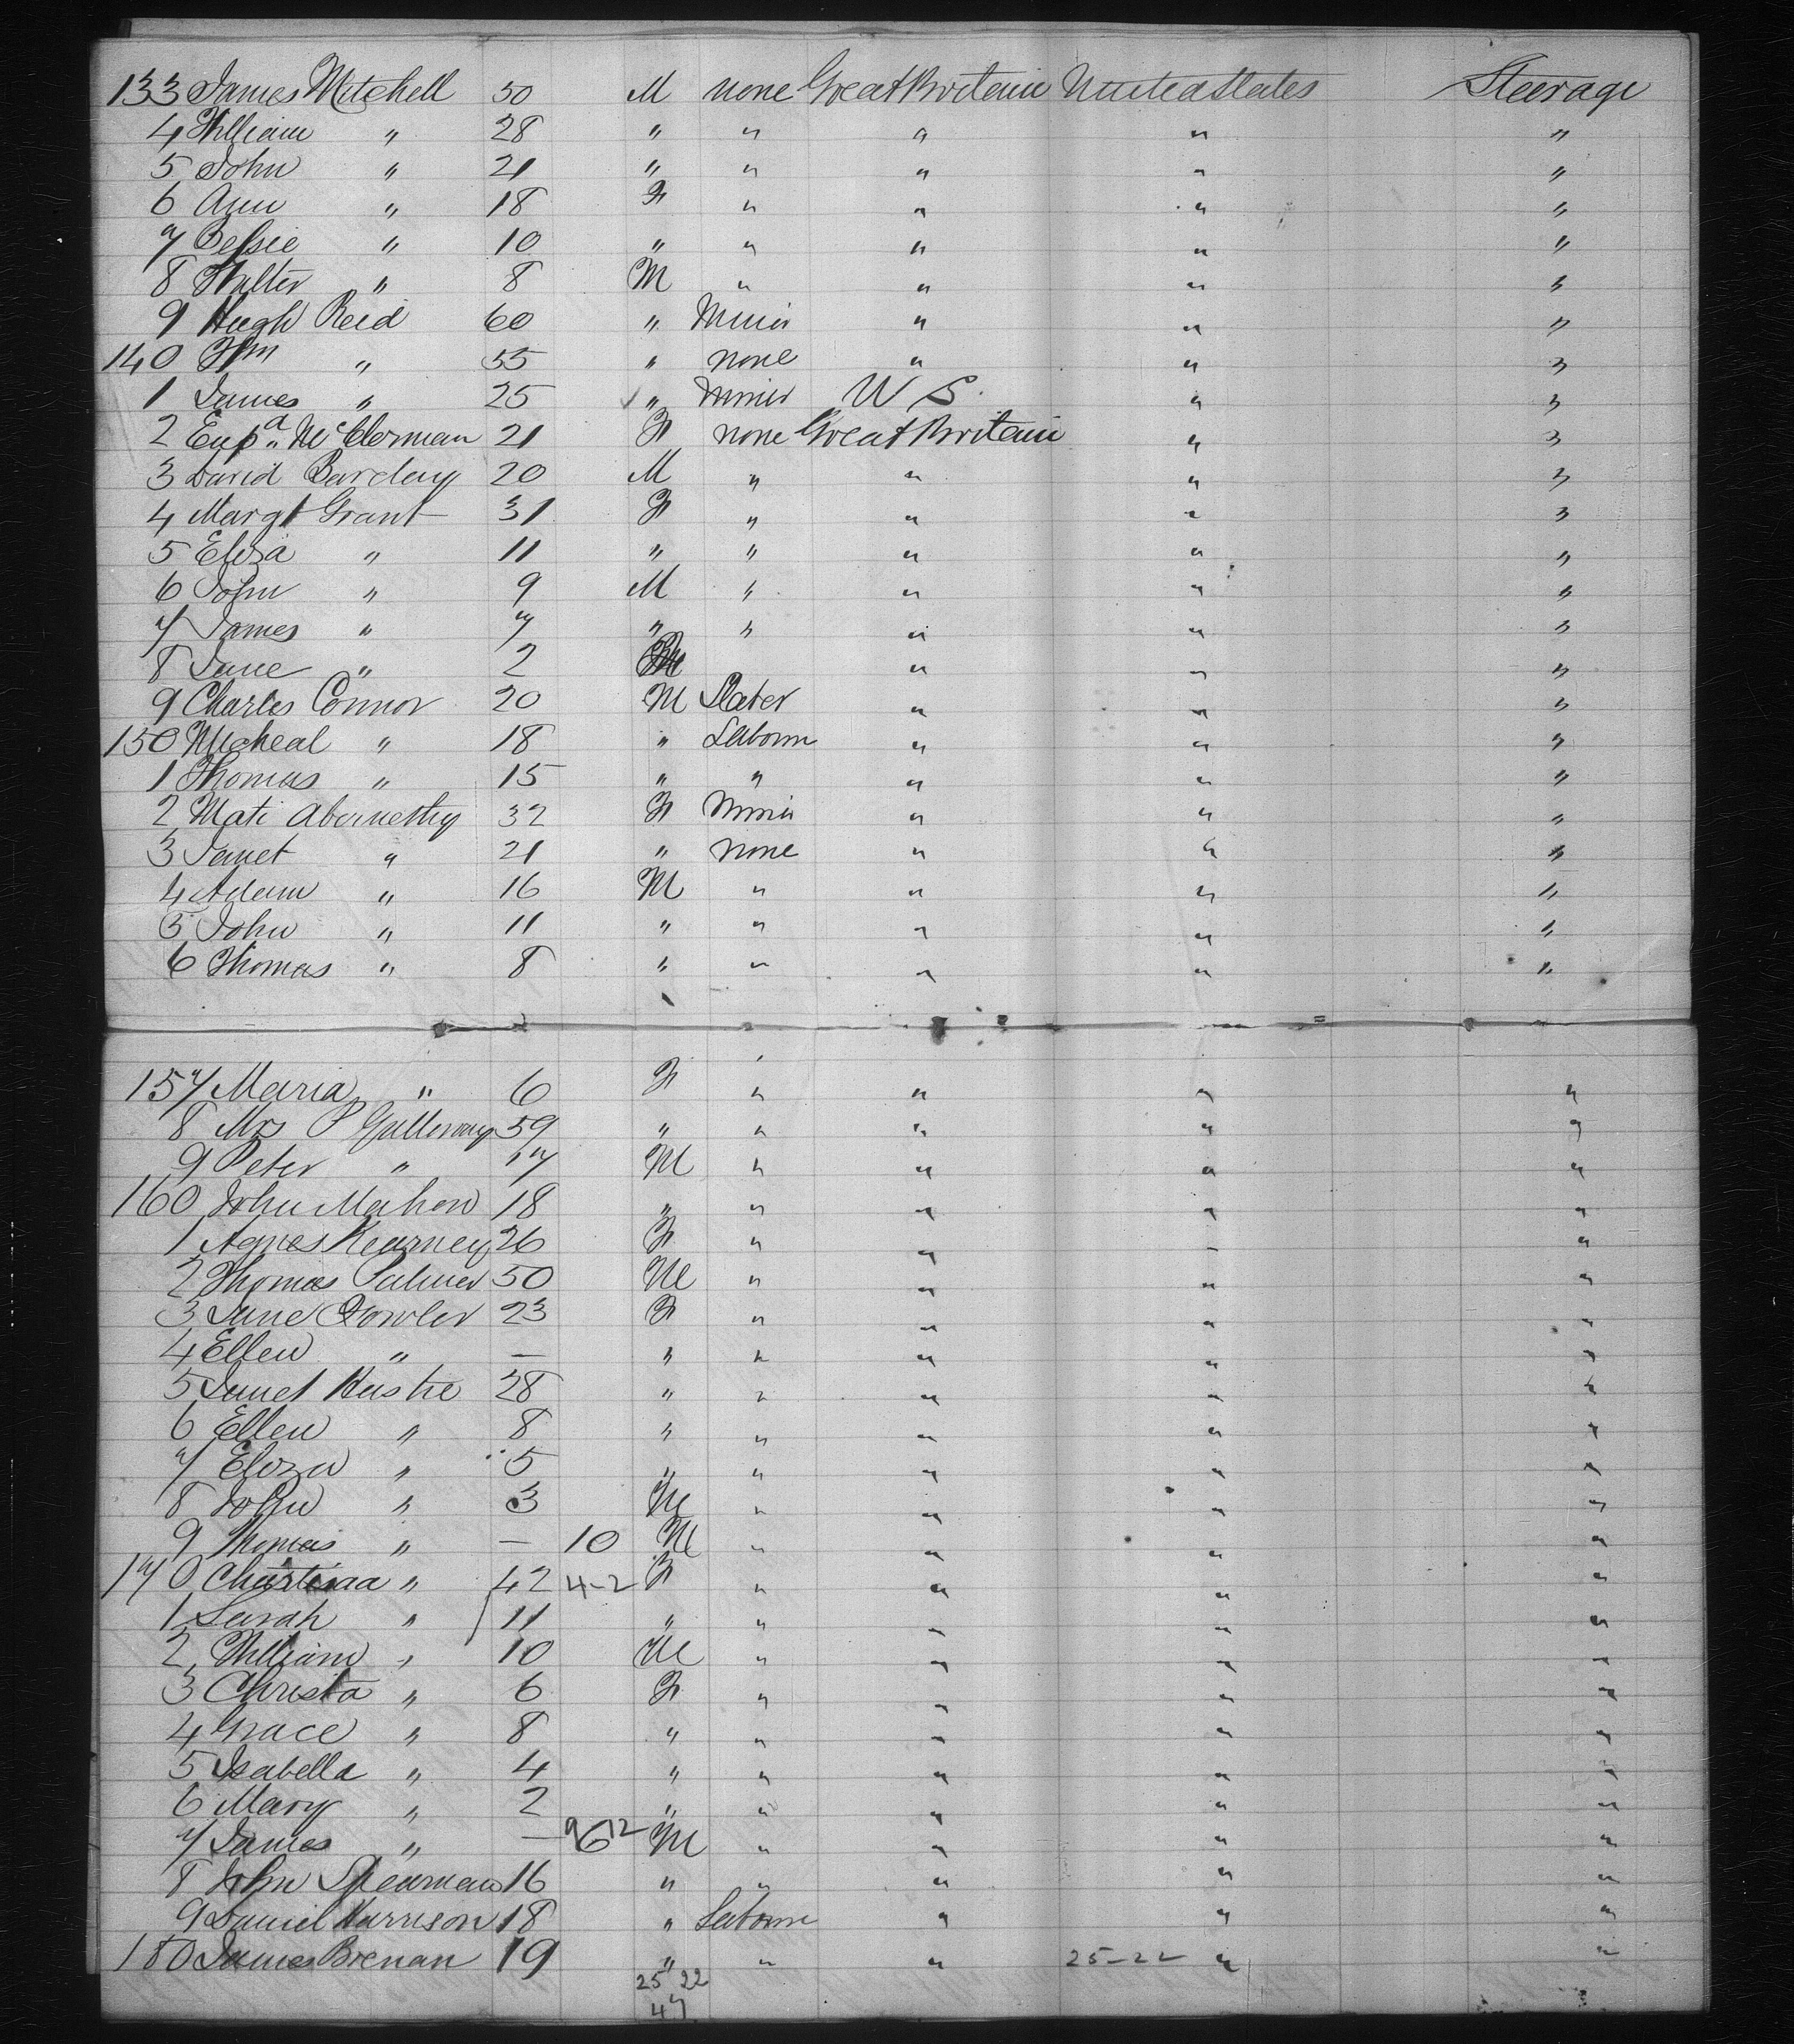 133 James Mitchell 50 M none Great Britain United States Steerage
4 William " 28 " " " " "
5 John " 21 " " " " "
6 Ann " 18 F " " " "
7 Bessie " 10 " " " " "
8 Walter " 8 M " " " "
9 Hugh Reid 60 " Miner " " "
140 Wm " 55 " none " " "
1 James " 25 " Miner U S. " "
2 Eupa " McClerman 21 F none Great Britain " "
3 David Barclay 20 M " " " "
4 Margt Grant 31 F " " " "
5 Eliza " 11 " " " " "
6 John " 9 M " " " "
7 James " 7 " " " " "
8 Jane " 2 " " "
9 Charles Connor 20 M Slater " " "
150 Micheal " 18 " Laborer " " "
1 Thomas " 15 " " " " "
2 Mati Abernethy 32 F Miner " " "
3 Janet " 21 " none " " "
4 Adam " 16 M " " " "
5 John " 11 " " " " "
6 Thomas " 8 " " " " "
157 Maria " 6 F " " " "
8 Mrs P Galloway 59 " " " " "
9 Peter " 17 M " " " "
160 John Mahon 18 " " " " "
1 Agnes Kearney 26 F " " " "
2 Thomas Palmer 50 M " " " "
3 Jane Fowler 23 F " " " "
4 Ellen " — " " " " "
5 Janet Hastie 28 " " " " "
6 Ellen " 8 " " " " "
7 Eliza " 5 " " " " "
8 John " 3 M " " " "
9 Thomas " — 10 M " " " "
170 " 42 4-2 F " " " "
1 Sarah " 11 " " " " "
2 William " 10 M " " " "
3 Christa " 6 F " " " "
4 Grace " 8 " " " " "
5 Isabella " 4 " " " " "
6 Mary " 2 " " " " "
7 James " — M " " " "
8 John Spearman 16 " " " " "
9 Daniel Harrison 18 " Laborer " " "
180 James Brenan 19 " " " 25-22 " "
25 22
47